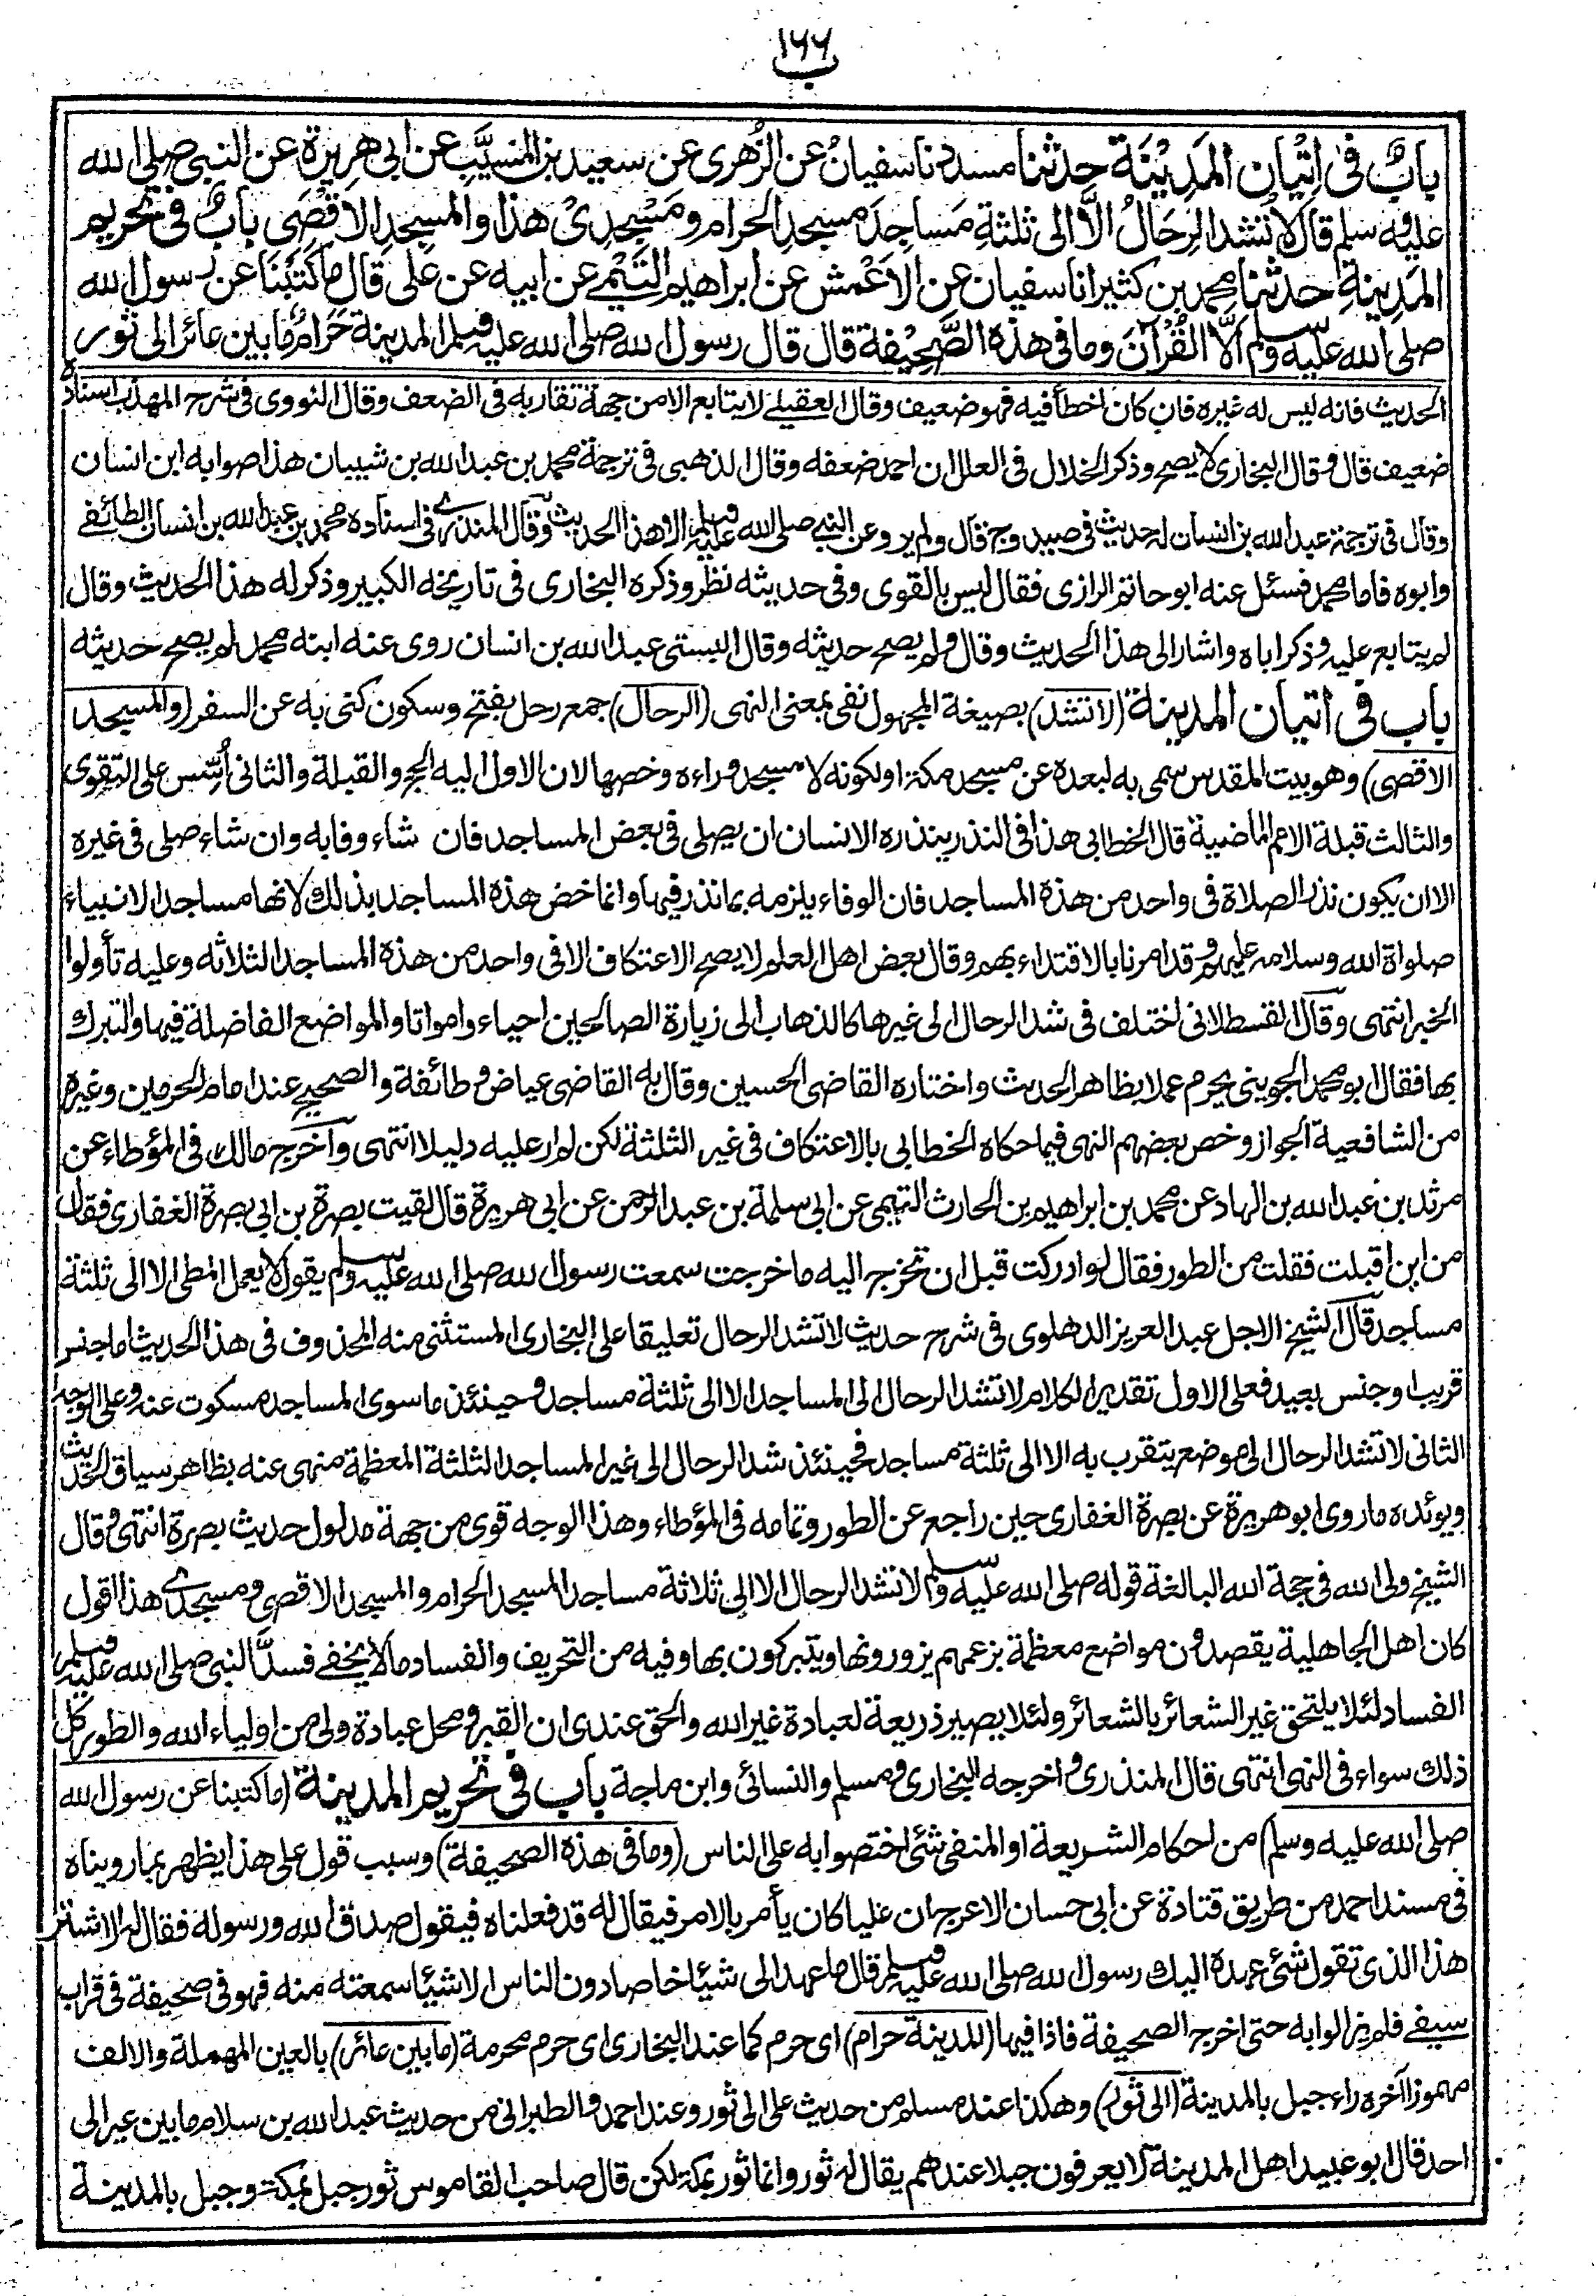 ١٦٦
ب
بابٌ فى اِتْيان المَدِيْنَة حدثنا مسدد نا سفيانُ عن الزُهرى عن سعيد بن المُسيَّبِ عن ابى هريرة عن النبى صلى الله
عليه وسلم قال لا تُشَد الرِحَالُ الَّا الى ثلثةِ مَساجِدَ مسجدِ الحرام ومَسْجِدِىْ هذا والمسجِدِ الاقْصَى بابٌ فى تحريم
المَدِينَةِ حدثنا محمد بن كثير انا سفيان عن الاعْمش عن ابراهيم التَيْمى عن ابيه عن على قال ما كَتَبْنَا عن رسول الله
صلى الله عليه وسلم اِلَّا القُرْآنَ وما فى هذه الصَّحِيْفة قال قال رسول الله صلى الله عليه وسلم المدينة حَرَامٌ ما بين عائر الى ثور
الحديث فانه ليس له غيره فان كان اخطأ فيه فهو ضعيف وقال العقيلى لا يتابع الا من جهة تقاربه فى الضعف وقال النووى فى شرح المهذب اسناده
ضعيف قال وقال البخارى لا يصح وذكر الخلال فى العلل ان احمد ضعفه وقال الذهبى فى ترجمة محمد بن عبد الله بن شيبان هذا صوابه ابن انسان
وقال فى ترجمة عبد الله بن انسان له حديث فى صيد وج قال ولم يرو عن النبى صلى الله عليه وسلم الا هذا الحديث وقال المنذرى فى اسناده محمد بن عبد الله بن انسان الطائفى
وابوه فاما محمد فسئل عنه ابو حاتم الرازى فقال ليس بالقوى وفى حديثه نظر وذكره البخارى فى تاريخه الكبير وذكر له هذا الحديث وقال
لم يتابع عليه وذكر اباه واشار الى هذا الحديث وقال ولم يصح حديثه وقال البستى عبد الله بن انسان روى عنه ابنه محمد لم يصح حديثه
باب فى اتيان المدينة (لا تشد) بصيغة المجهول نفى بمعنى النهى (الرحال) جمع رحل بفتح وسكون كنى به عن السفر (والمسجد
الاقصى) وهو بيت المقدس سمى به لبعده عن مسجد مكة او لكونه لا مسجد وراءه وخصها لان الاول اليه الحج والقبلة والثانى أُسِّس على التقوى
والثالث قبلة الامم الماضية قال الخطابى هذا فى النذر ينذره الانسان ان يصلى فى بعض المساجد فان شاء وفا به وان شاء صلى فى غيره
الا ان يكون نذر الصلاة فى واحد من هذه المساجد فان الوفاء يلزمه بما نذر فيها وانما خص هذه المساجد بذلك لانها مساجد الانبياء
صلواة الله وسلامه عليهم وقد امرنا بالاقتداء بهم وقال بعض اهل العلم لا يصح الاعتكاف الا فى واحد من هذه المساجد الثلاثه وعليه تأولوا
الخبر انتهى وقال القسطلانى اختلف فى شد الرحال الى غيرها كالذهاب الى زيارة الصالحين احياء وامواتا والمواضع الفاضلة فيها والتبرك
بها فقال ابو محمد الجوينى يحرم عملا بظاهر الحديث واختاره القاضى الحسين وقال به القاضى عياض وطائفة والصحيح عند امام الحرمين وغيره
من الشافعية الجواز وخص بعضهم النهى فيما حكاه الخطابى بالاعتكاف فى غير الثلثة لكن لم ار عليه دليلا انتهى وآخرج مالك فى المؤطاء عن
مرثد بن عبد الله بن الهاد عن محمد بن ابراهيم بن الحارث التيمى عن ابى سلمة بن عبد الرحمن عن ابى هريرة قال لقيت بصرة بن ابى بصرة الغفارى فقال
من اين اقبلت فقلت من الطور فقال لو ادركت قبل ان تخرج اليه ما خرجت سمعت رسول الله صلى الله عليه وسلم يقول لا يعمل المطى الا الى ثلثة
مساجد قال الشيخ الاجل عبد العزيز الدهلوى فى شرح حديث لا تشد الرحال تعليقا على البخارى المستثنى منه المحذوف فى هذا الحديث اما جنس
قريب او جنس بعيد فعلى الاول تقدير الكلام لا تشد الرحال الى المساجد الا الى ثلثة مساجد وحينئذ ما سوى المساجد مسكوت عنه وعلى الوجه
الثانى لا تشد الرحال الى موضع يتقرب به الا الى ثلثة مساجد فحينئذ شد الرحال الى غير المساجد الثلثة المعظمة منهى عنه بظاهر سياق الحديث
ويوئده ما روى ابو هريرة عن بصرة الغفارى حين راجع عن الطور وتمامه فى المؤطاء وهذا الوجه قوى من جهة مدلول حديث بصرة انتهى وقال
الشيخ ولى الله فى حجة الله البالغة قوله صلى الله عليه وسلم لا تشد الرحال الا الى ثلاثة مساجد المسجد الحرام والمسجد الاقصى ومسجدى هذا اقول
كان اهل الجاهلية يقصدون مواضع معظمة بزعمهم يزورونها ويتبركون بها وفيه من التحريف والفساد ما لا يخفى فسدَّ النبى صلى الله عليه وسلم
الفساد لئلا يلتحق غير الشعائر بالشعائر ولئلا يصير ذريعة لعبادة غير الله والحق عندى ان القبر ومحل عبادة ولى من اولياء الله والطور كل
ذلك سواء فى النهى انتهى قال المنذرى واخرجه البخارى ومسلم والنسائى وابن ماجة باب فى تحريم المدينة (ما كتبنا عن رسول الله
صلى الله عليه وسلم) من احكام الشريعة او المنفى شئ اختصوا به على الناس (وما فى هذه الصحيفة) وسبب قول على هذا يظهر بما رويناه
فى مسند احمد من طريق قتادة عن ابى حسان الاعرج ان عليا كان يأمر بالامر فيقال له قد فعلناه فيقول صدق الله ورسوله فقال له الاشتر
هذا الذى تقول شئ عهده اليك رسول الله صلى الله عليه وسلم قال ما عهد الى شيئا خاصا دون الناس الا شيئا سمعته منه فهو فى صحيفة فى قراب
سيفى فلم يزالوا به حتى اخرج الصحيفة فاذا فيها (المدينة حرام) اى حرم كما عند البخارى اى حرم محرمة (ما بين عائر) بالعين المهملة والالف
مهموزا آخره راء جبل بالمدينة (الى ثور) وهكذا عند مسلم من حديث على الى ثور وعند احمد والطبرانى من حديث عبد الله بن سلام ما بين عير الى
احد قال ابو عبيد اهل المدينة لا يعرفون جبلا عندهم يقال له ثور وانما ثور بمكة لكن قال صاحب القاموس ثور جبل بمكة وجبل بالمدينة